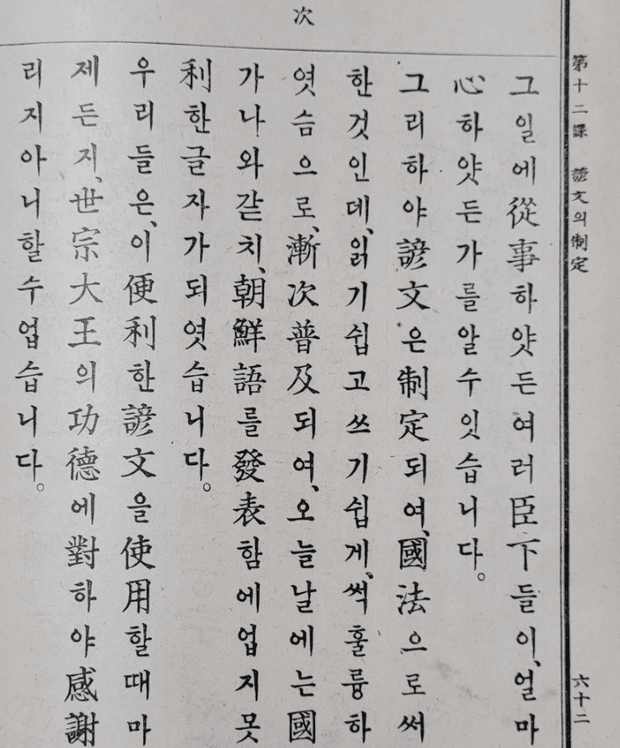 第十二課 諺文의制定
六十二
次
그일에從事하얏든여러臣卞들이、얼마
心하얏든가를알수잇습니다。
그리하야諺文은制定되여、國法으로써
한것인데、읽기쉽고쓰기쉽게、썩훌륭하
엿슴으로、漸次普及되여、오늘날에는國
가나와갇치、朝鮮語를發表함에업지못
利한글자가되엿습니다。
우리들은、이便利한諺文을使用할때마
제든지、世宗大王의功德에對하야感謝
리지아니할수업습니다。